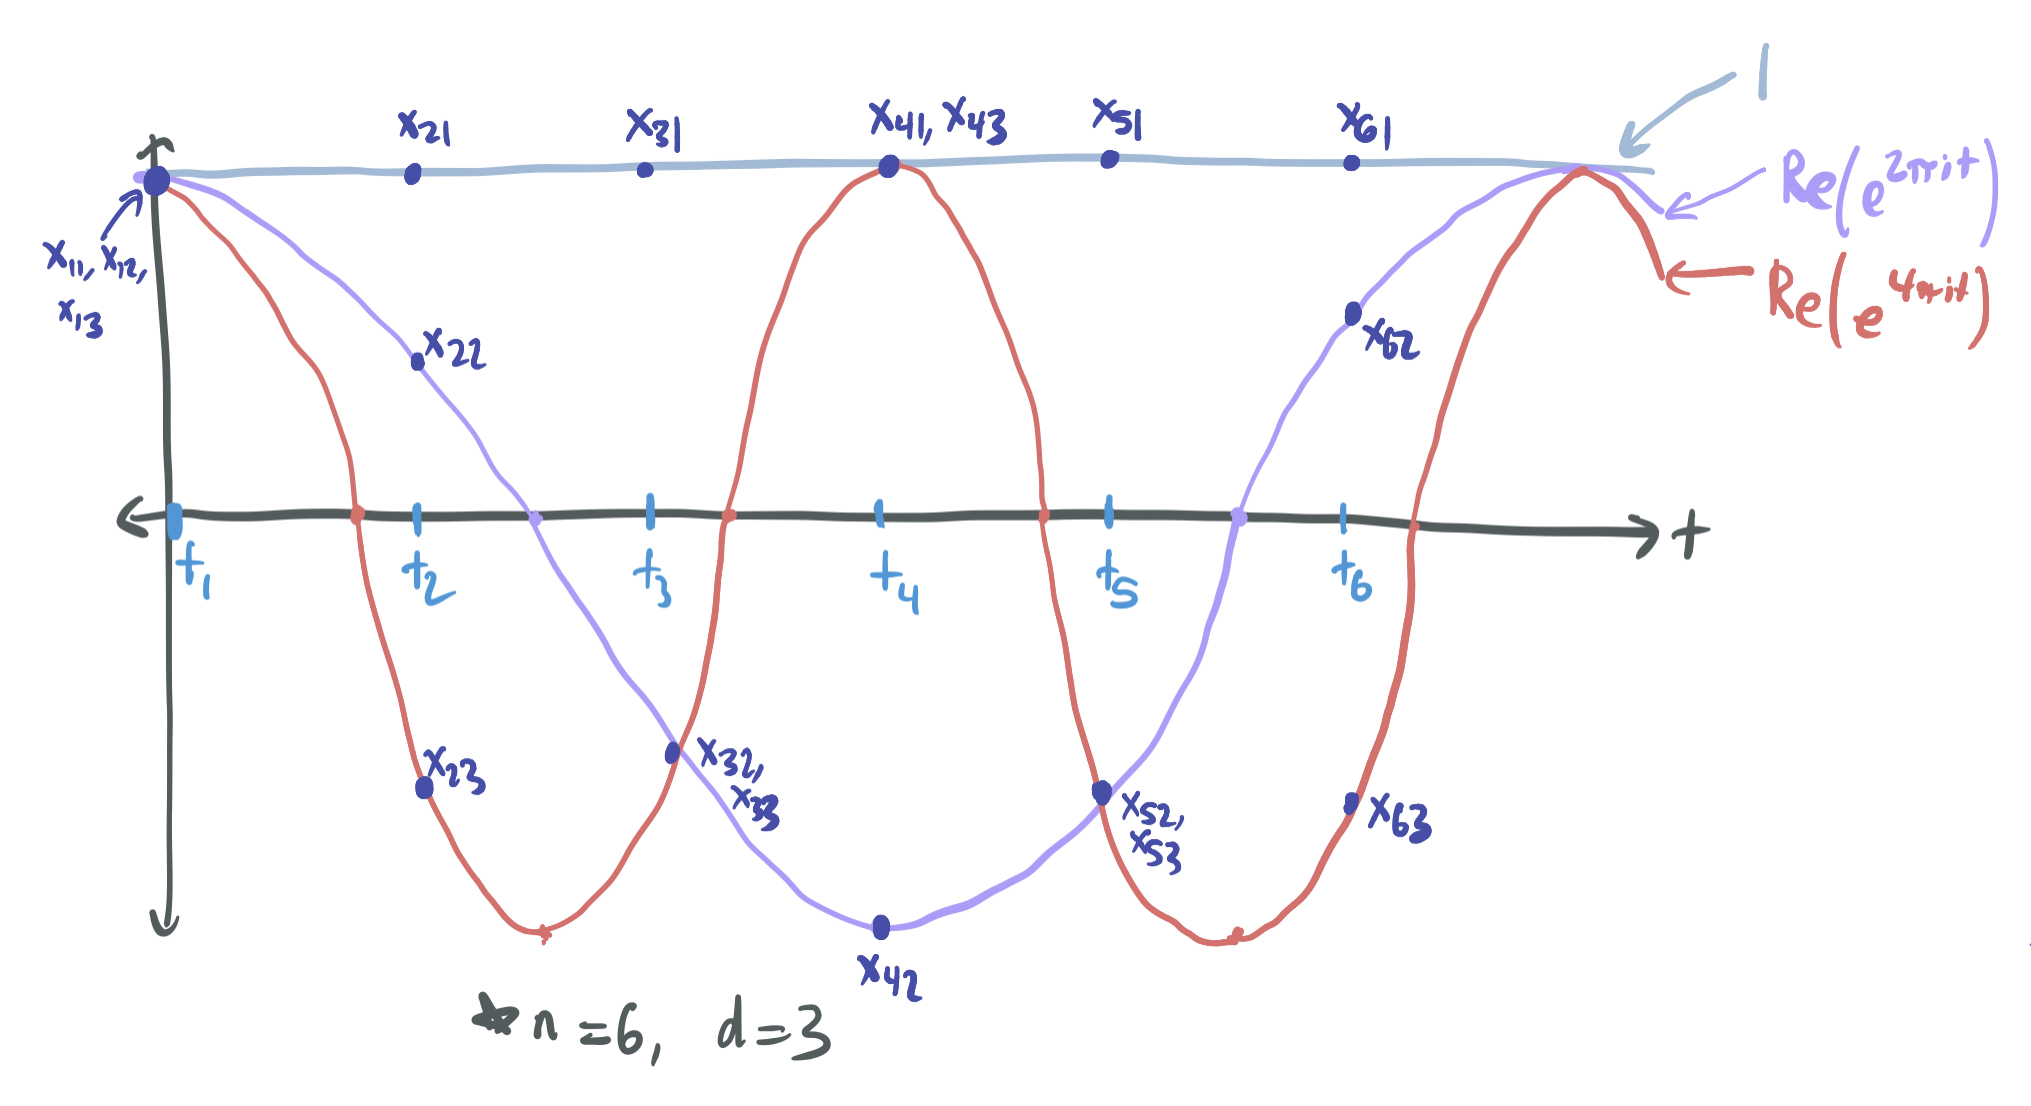 1
x₂₁
x₃₁
x₄₁, x₄₃
x₅₁
x₆₁
Re(e^{2πit})
x₁₁, x₁₂,
x₁₃
Re(e^{4πit})
x₂₂
x₆₂
t
t₁
t₂
t₃
t₄
t₅
t₆
x₂₃
x₃₂,
x₃₃
x₅₂,
x₅₃
x₆₃
x₄₂
* n=6, d=3